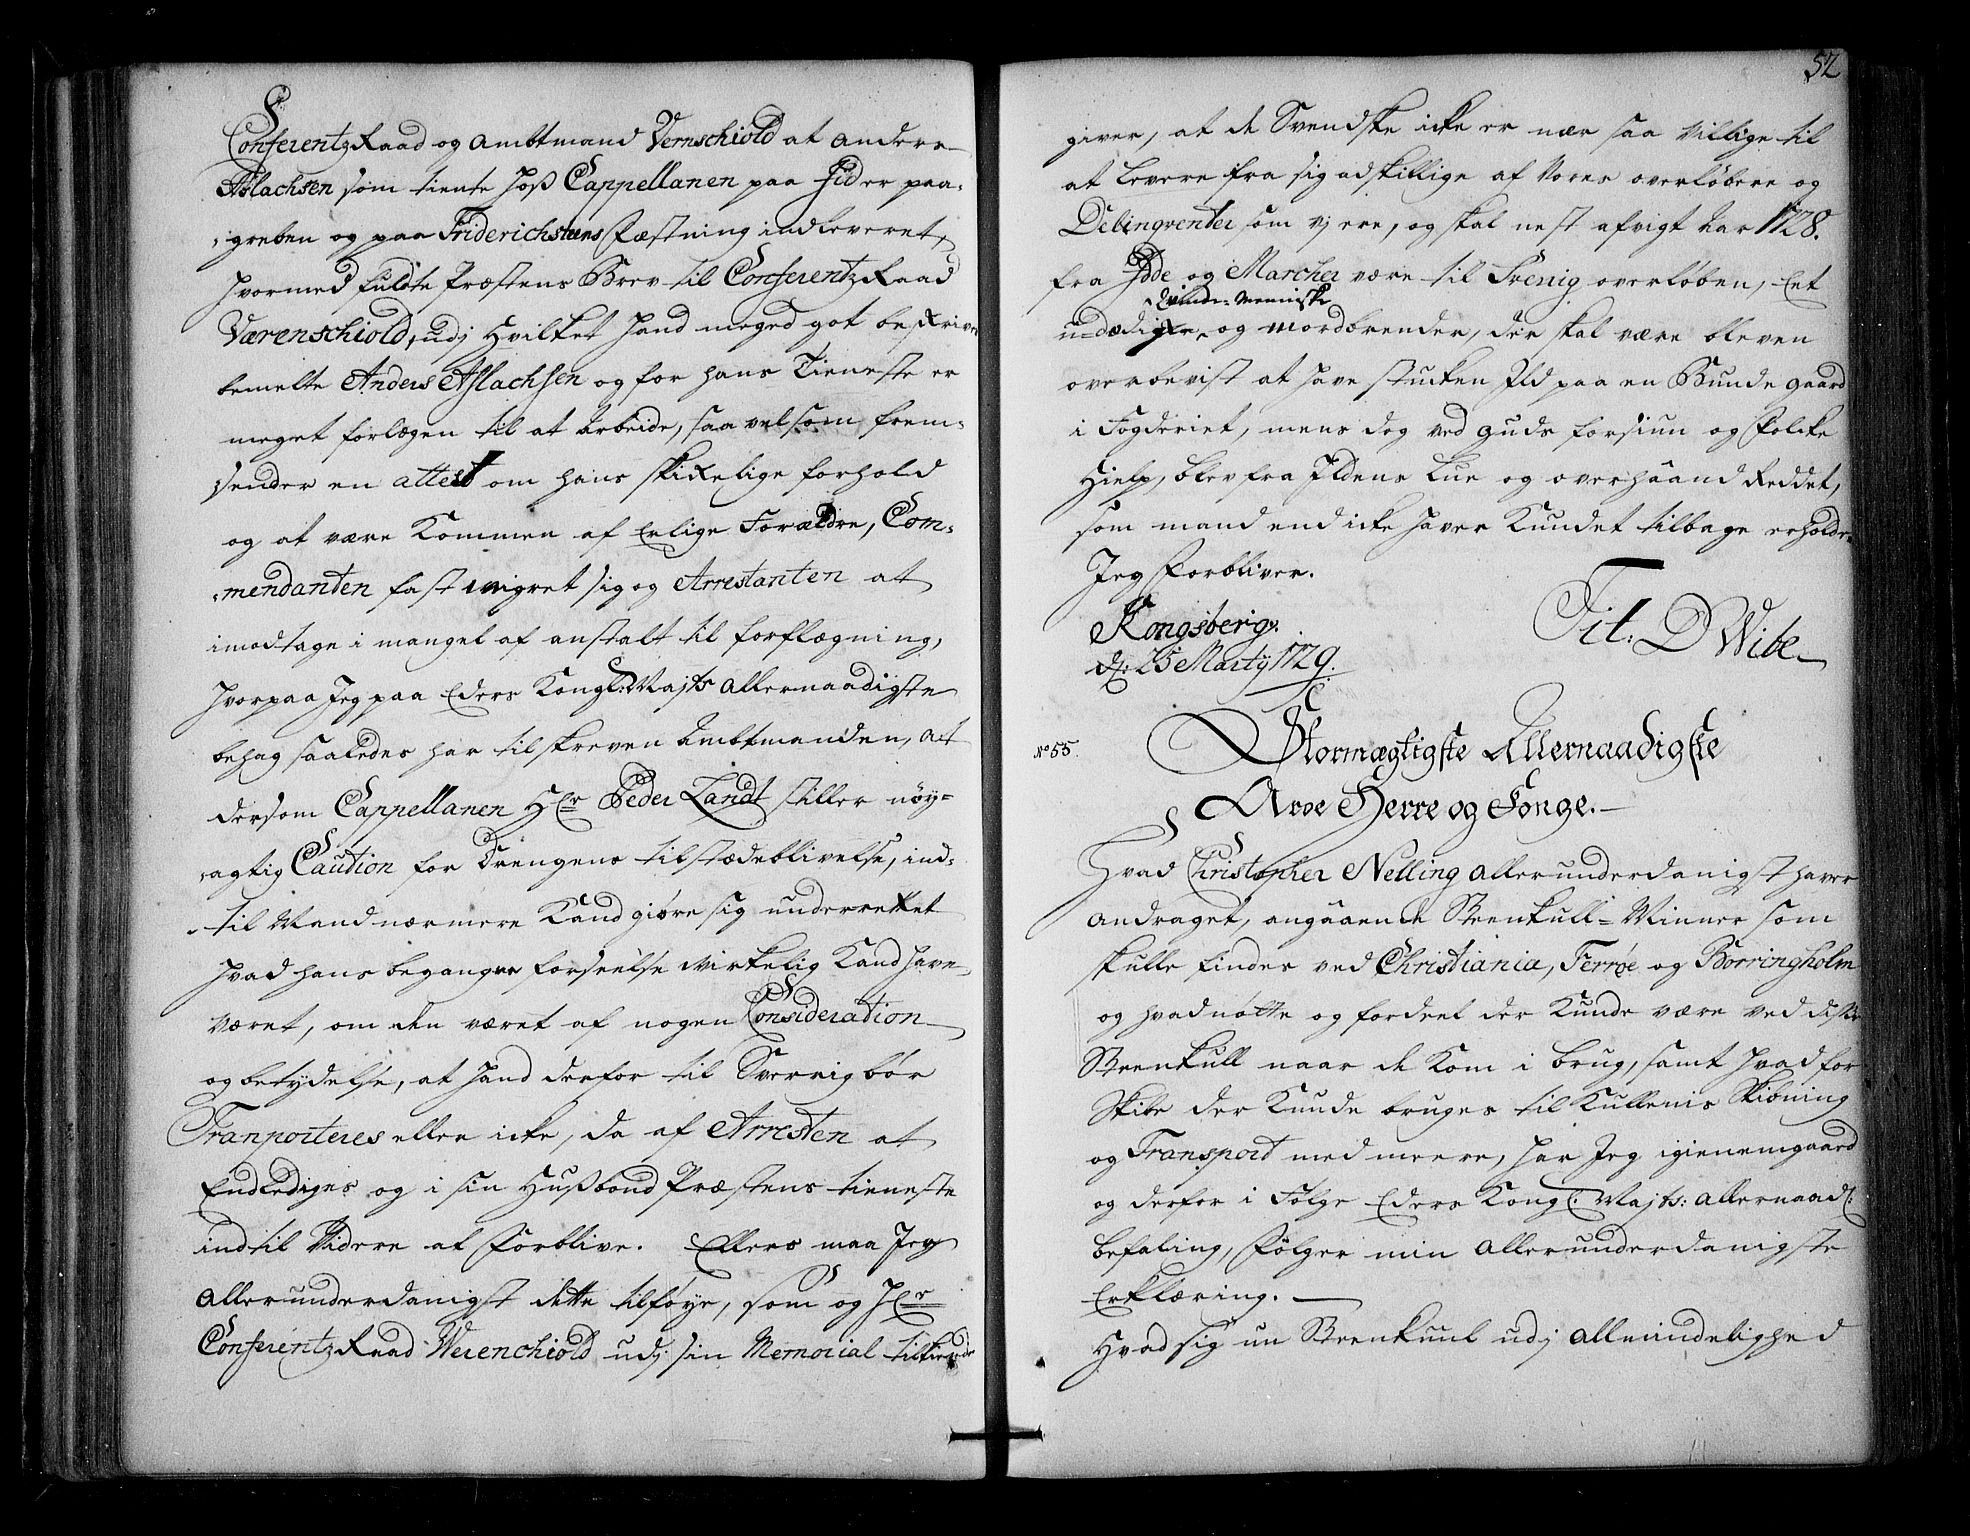 Conferentz Raad og Ambtmand Vernschiold at Anders
Aslachsen som tiente hoß Cappellanen paa Jid er paa-
greben og paa Friderichsteens Fæstning indleveret,
hvormed fuldte Præstens Brev til Conferentz Raad
Værenschiold, udj hvilket hand meged got beskriver
bemelte Anders Aslachsen og for hans Tieneste er
meget forlægen til at arbeide, saavelsom frem-
sender en attest om hans skikelige forhold
og at være kommen af Erlige Forældre, Com-
mendanten fast veigret sig og Arrestanten at
imodtage i mangel af anstalt til forflægning,
hvorpaa Jeg paa Eders Kongl: Majts allernaadigste
behag saaledes har tilskreven Ambtmanden, at
dersom Cappellanen Hr Peder Landt stiller nöy-
agtig Caution for Drengens tilstædeblivelse, ind-
til Mand nærmere kand giøre sig underrettet
hvad hans begangne forseelse virkelig kand have
været, om den været af nogen Consideration
og betydelse, at hand derfor til Sverrig bör
Tranporteres eller icke, da af Arresten at
Endlediges og i sin Hußbond Præstens tieneste
indtil Videre at forblive. Ellers maa Jeg
allerunderdanigst dette tilföye, som og Hr
Conferentz Raad Werenchiold udj sin Memorial tilkiende
52
giver, at de Svendske icke er nær saa villige til
at Levere fra sig adskillige af Vores overløbere og
Delinqventer som vj ere, og skal nest afvigt Aar 1728.
fra Idde og Marcher være til Svenig overløben, Eet
Qvinde-Menniske
udædige og Mordbrender, der skal være bleven
overbevist at have stucken Ild paa en Bunde gaard
i Fogderiet, mens dog ved Guds forsiun og Folcke
Hielp, blev fra Ildens Lue og overhaand Reddet,
som mand end icke haver kundet tilbage erholde.
Jeg forbliver.
Kongsberg.
d: 25 Martij 1729.
Tit. D Wibe
No 55.
Stormægtigste Allernaadigste
Arve Herre og Konge.
Hvad Christopher Nelling allerunderdanigst haver
andraget, angaaende Steenkull-Miner som
skulle findes ved Christiania, Ferrøe og Borringholm
og hvad nötte og fordeel der kunde være ved diße
Steenkull naar de kom i brug, samt hvad for
Skibe der kunde bruges til Kullenis Skibning
og Transport med meere, har Jeg igienemgaaed
og derfor i Følge Eders Kongl. Majts: allernaadl:
befaling, følger min allerunderdanigste
Erklæring.
Hvad sig nu Steenkuul udj allmindelighed